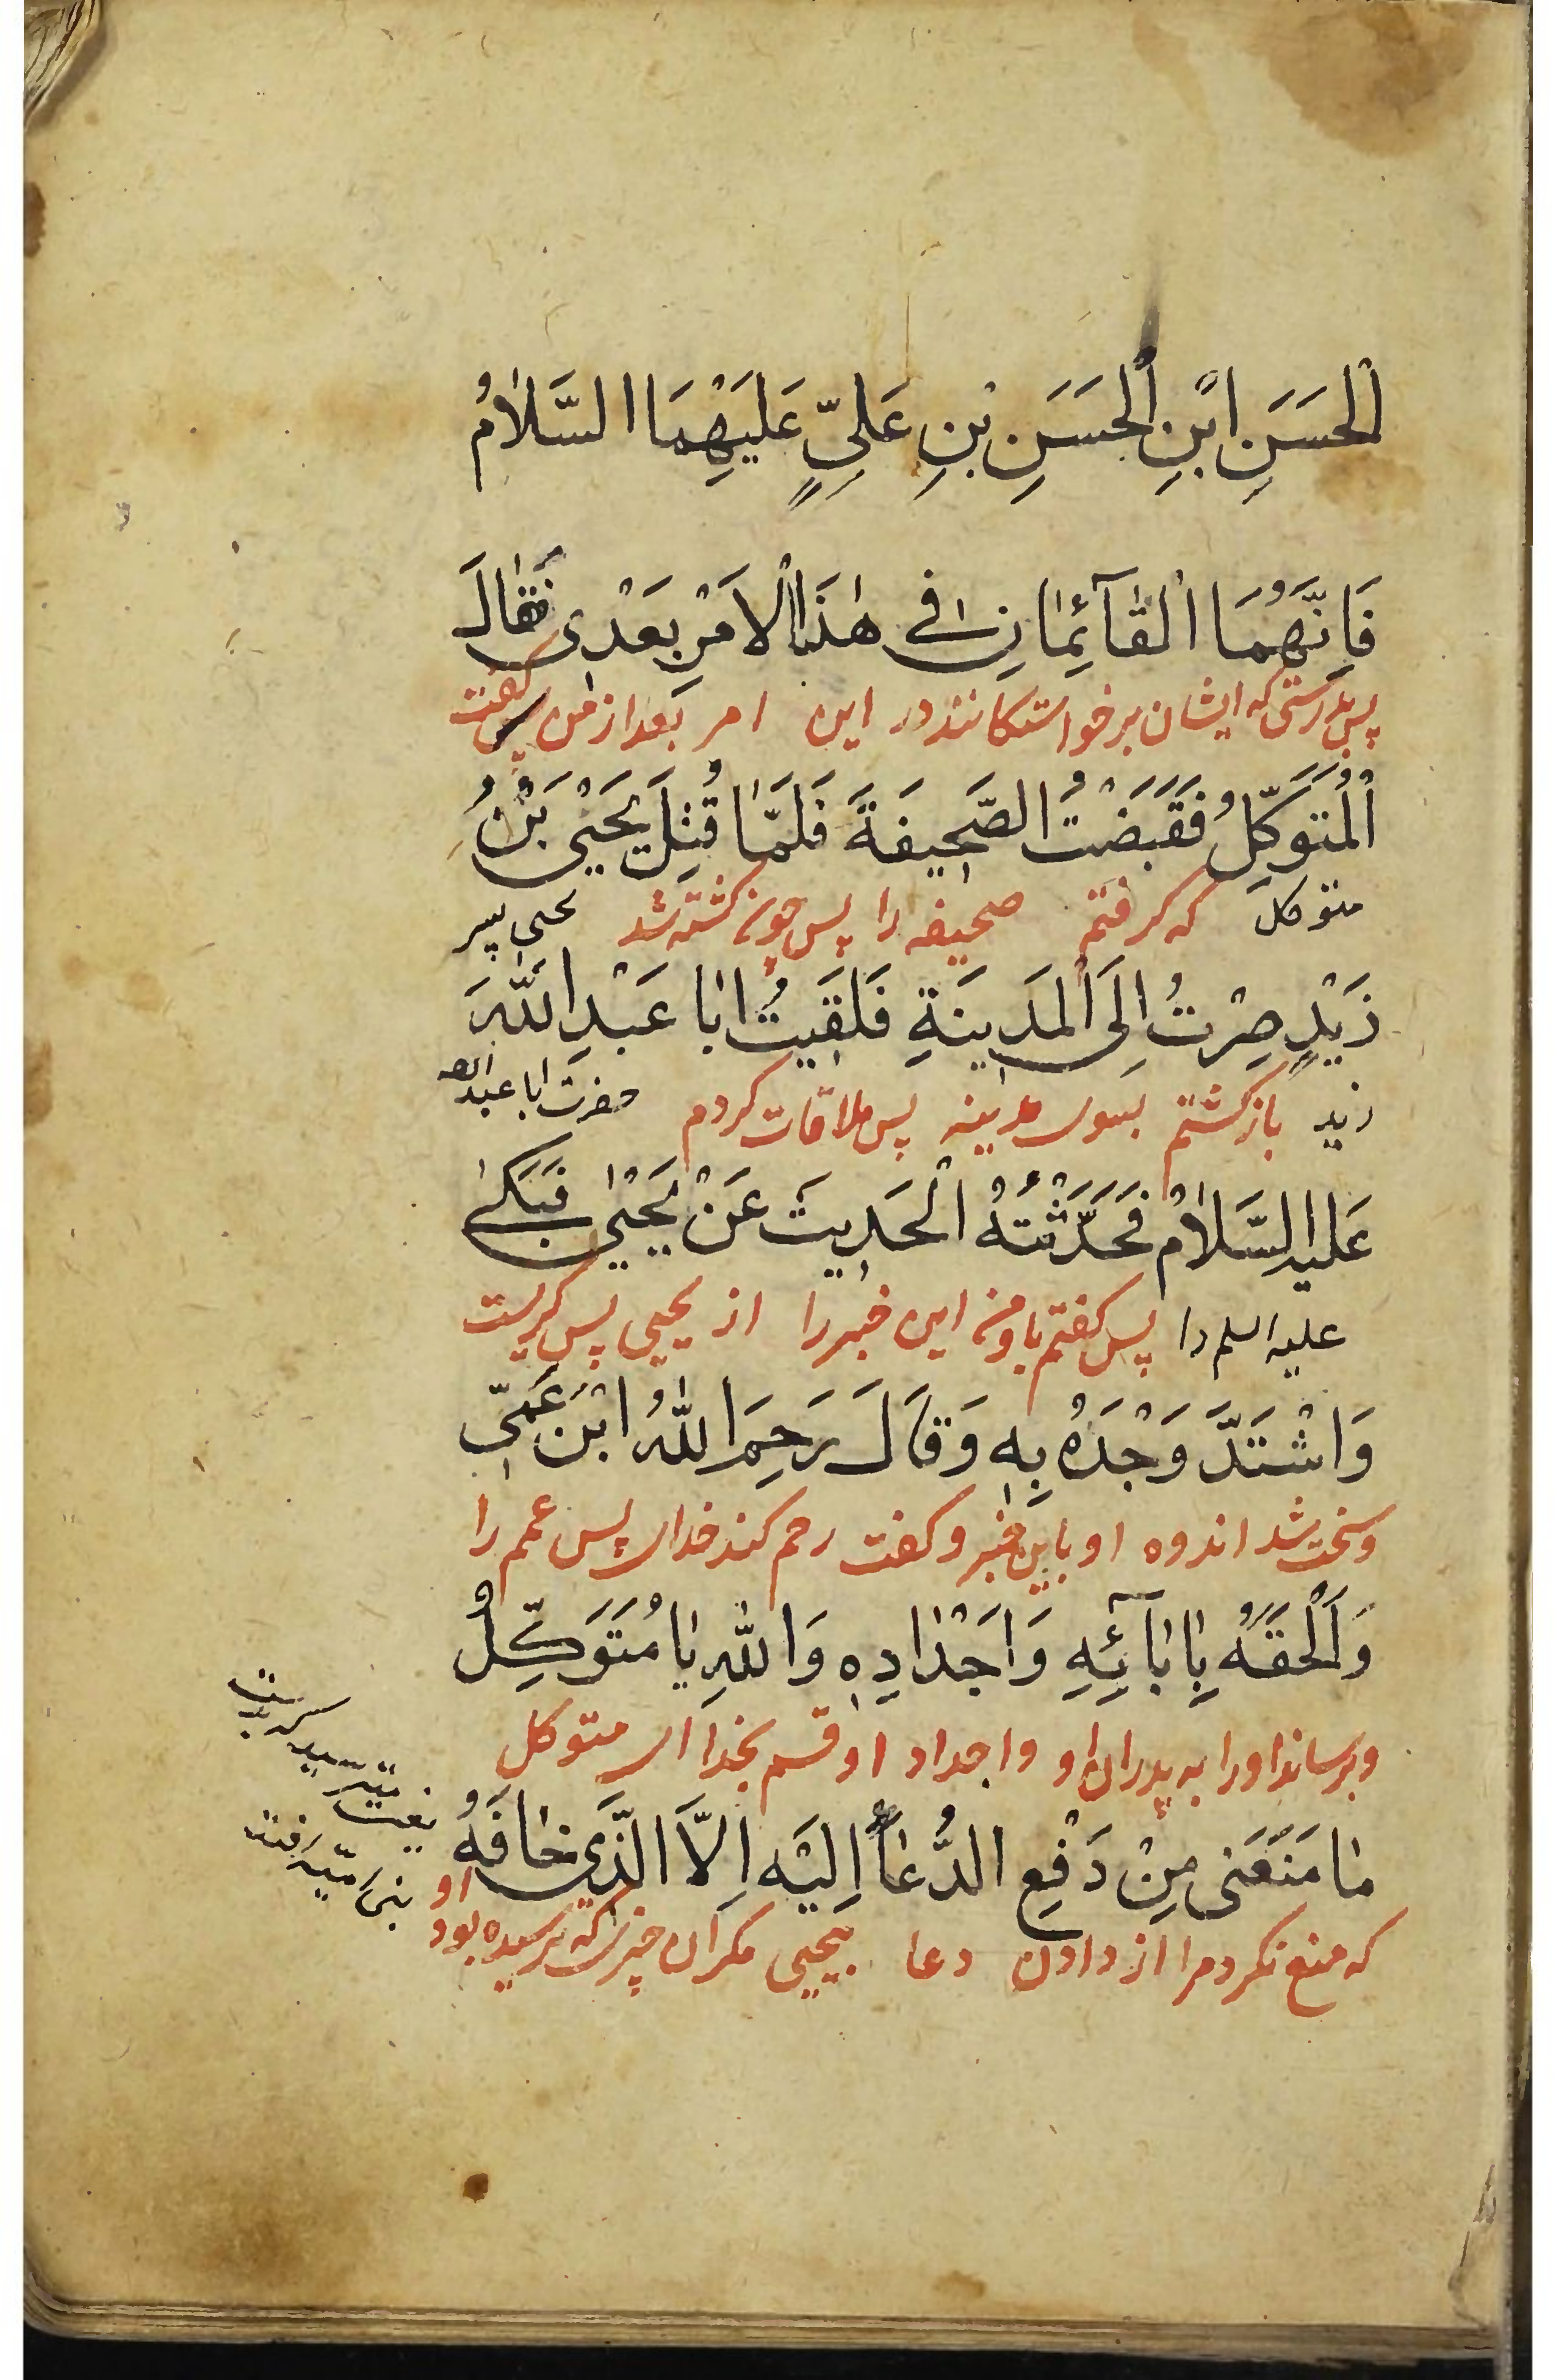 الْحَسَنِ ابْنِ الْحَسَنِ بْنِ عَلِيٍّ عَلَيْهِمَا السَّلَامُ
فَاِنَّهُمَا الْقَآئِمَانِ فِى هٰذَا الْاَمْرِ بَعْدِى فَقَالَ
پس بدرستی که ایشان برخواستکانند در این امر بعد از من پس کفت
الْمُتَوَكِّلُ فَقَبَضْتُ الصَّحِيفَةَ فَلَمَّا قُتِلَ يَحْيَى بْنُ
متوکل که کرفتم صحیفه را پس چون کشته شد یحیی پسر
زَيْدٍ صِرْتُ اِلَى الْمَدِينَةِ فَلَقِيتُ اَبَا عَبْدِ اللّٰهِ
زید بازکشتم بسوی مدینه پس ملاقات کردم حضرت ابا عبد الله
عَلَيْهِ السَّلَامُ فَحَدَّثْتُهُ الْحَدِيثَ عَنْ يَحْيٰى فَبَكٰى
علیه السلم را پس کفتم باو من این خبر را از یحیی پس کریست
وَاشْتَدَّ وَجْدُهُ بِهِ وَقَالَ رَحِمَ اللّٰهُ ابْنَ عَمِّى
و سخت شد اندوه او باین خبر و کفت رحم کند خدای پس عمم را
وَاَلْحَقَهُ بِاٰبَآئِهِ وَاَجْدَادِهِ وَاللّٰهِ يَا مُتَوَكِّلُ
و برساند او را به پدران او و اجداد او قسم بخدا ای متوکل
مَا مَنَعَنِى مِنْ دَفْعِ الدُّعَآءِ اِلَيْهِ اِلَّا الَّذِى خَافَهُ
که منع نکرد مرا از دادن دعا بیحیی مکر آن چیزی که ترسیده بود او